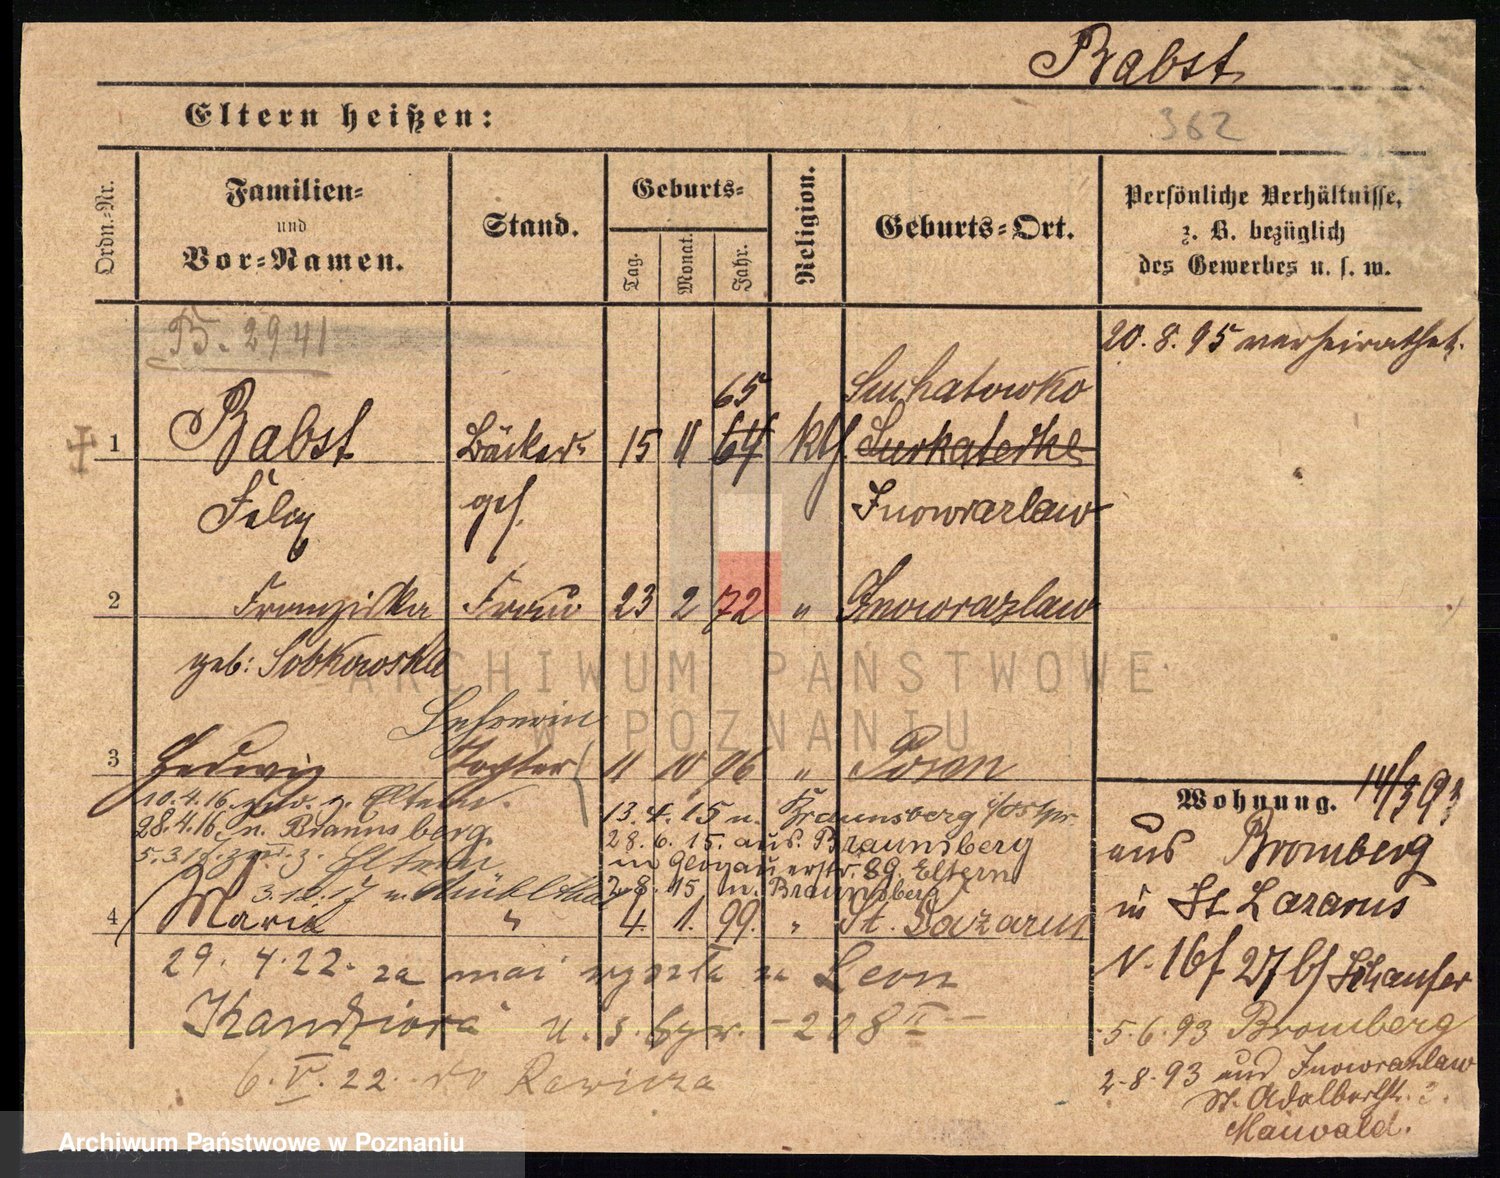 Babst
Eltern heißen:
362
Ordn.-Nr.
Familien-
und
Vor-Namen.
Stand.
Geburts-
Tag.
Monat.
Jahr.
Religion.
Geburts-Ort.
Persönliche Verhältnisse,
z. B. bezüglich
des Gewerbes u. s. w.
B. 2941
20.8.95 verheirathet.
65 Suchatowko
1 Babst Bäcker- 15 11 64 kth
Felix ges. Inowrazlaw
2 Franziska Frau 23 2 72 " Inowrazlaw
geb: Sobkowska
Lehrerin
3 Hedwig Tochter 11 10 96 " Posen
10.4.16 z. Eltern.
13.4.15 n. Braunsberg o/Ostpr.
28.4.16 n. Braunsberg.
28.6.15. aus Braunsberg
5.3.17 z. Eltern
in Glogauerstr. 89. Eltern
3.12.17 n. Mühlthal
2.8.15 n. Braunsberg
4 Maria " 4. 1. 99. " St. Lazarus
29.4.22. za mąż wyszła za Leon
Kandziora 208 II
6.V.22. do Rawicza
Wohnung. 14/3 93
aus Bromberg
in St Lazarus
N. 16f 27 bei Schaufer
5.6.93 Bromberg
2.8.93 und Inowrazlaw
St. Adalbertstr. 3.
Maiwald.
ARCHIWUM PAŃSTWOWE
W POZNANIU
Archiwum Państwowe w Poznaniu